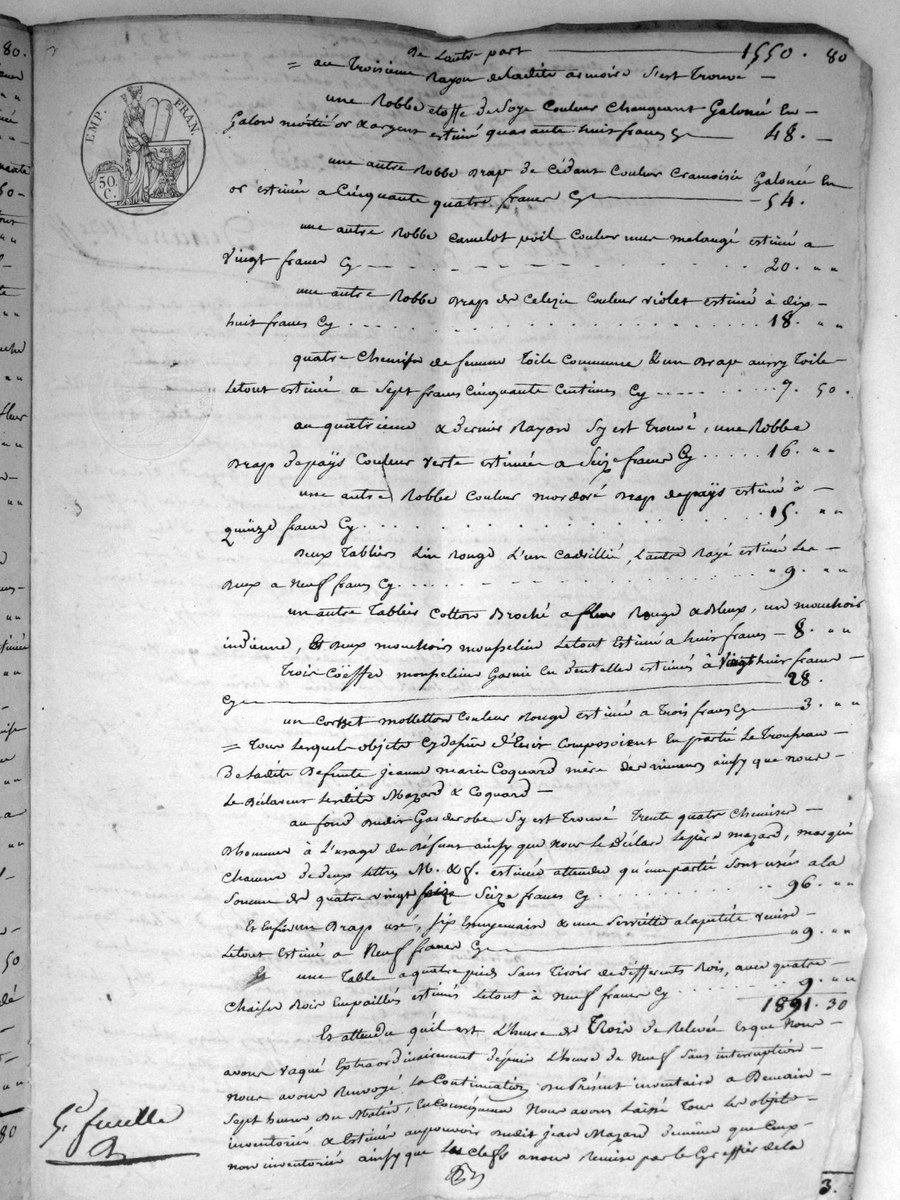 de Lautre part 1550. 80
= au Troisieme Rayon deladite armoire s'est Trouvé
une Robbe étoffe de Soye Couleur Changeant Galonée En
Galon moitié or & argent estimé quarante huit francs Cy 48.
une autre Robbe Drap de Couleur Cramoisée Galonée En
or estimée a Cinquante quatre francs Cy 54.
une autre Robbe Camelot poil Couleur melangé estimé a
Vingt francs Cy 20. " "
une autre Robbe Drap de Couleur Violet estimé à dix
huit francs Cy 18. " "
quatre Chemises de femme Toile Commune & un Drap aussy Toile
Letout estimé a Sept francs Cinquante Centimes Cy 7. 50.
au quatrieme & dernier Rayon Sy est Trouvé, une Robbe
Drap depaÿs Couleur Verte estimée a Seize francs Cy 16. " "
une autre Robbe Couleur mordoré Drap depaÿs estimé à
quinze francs Cy 15 " "
Deux Tabliers Lin Rouge L'un Cadrillié, Lautre Rayé estimée Les
Deux a Neuf francs Cy " 9. " "
un autre Tablier Cotton Broché a fleur Rouge & Bleux, un mouchoir
indienne, Et Deux mouchoirs mousseline Letout Estimé a huit francs 8. " "
Trois Coëffes mousseline Garnie En dentelles estimés à Vingt huit francs
Cy 28.
un Corset molletton Couleur Rouge estimé a Trois francs Cy 3. " "
= Tous Lesquels objets Cy dessus d'Ecrit Composoient En partie Le Trousseau
De Ladite Defunte jeanne marie Coquard mère des mineurs ainsy que nous
Le Déclarent Lesdits Mazard & Coquard
au fond dudit Garderobe Sy est Trouvé Trente quatre Chemises
Dhommes à L'usage du Défunt ainsy que nous Le Déclare Lepère Mazard, marqué
Chacune de deux Lettres M. & estimée attendu qu'une partie Sont usées a la
Somme de quatre vingt Seize francs Cy 96. " "
Et Enfin un Drap usé, Six & une Serviette alapetite Venise
Letout Estimé a Neuf francs Cy " 9. " "
Et une Table a quatre pieds Sans Tiroir de différents Bois, avec quatre
Chaises Bois Empaillés estimés Letout à Neuf francs Cy 9. " "
1891. 30
Et attendu qu'il est L'heure de Trois de Relevée Et que Nous
avons Vaqué Extraordinairement depuis L'heure de Neuf Sans interruption
Nous avons Renvoyé La Continuation du Présent inventaire a Demain
Sept heures Du Matin, En Conséquence Nous avons Laissé Tous Les objets
inventoriés & Estimés aupouvoir dudit jean Mazard demême que Ceux
non inventoriés ainsy que Les Clefs anous Remise par le Greffier dela
EMP. FRAN.
50. C.
feuille
3.